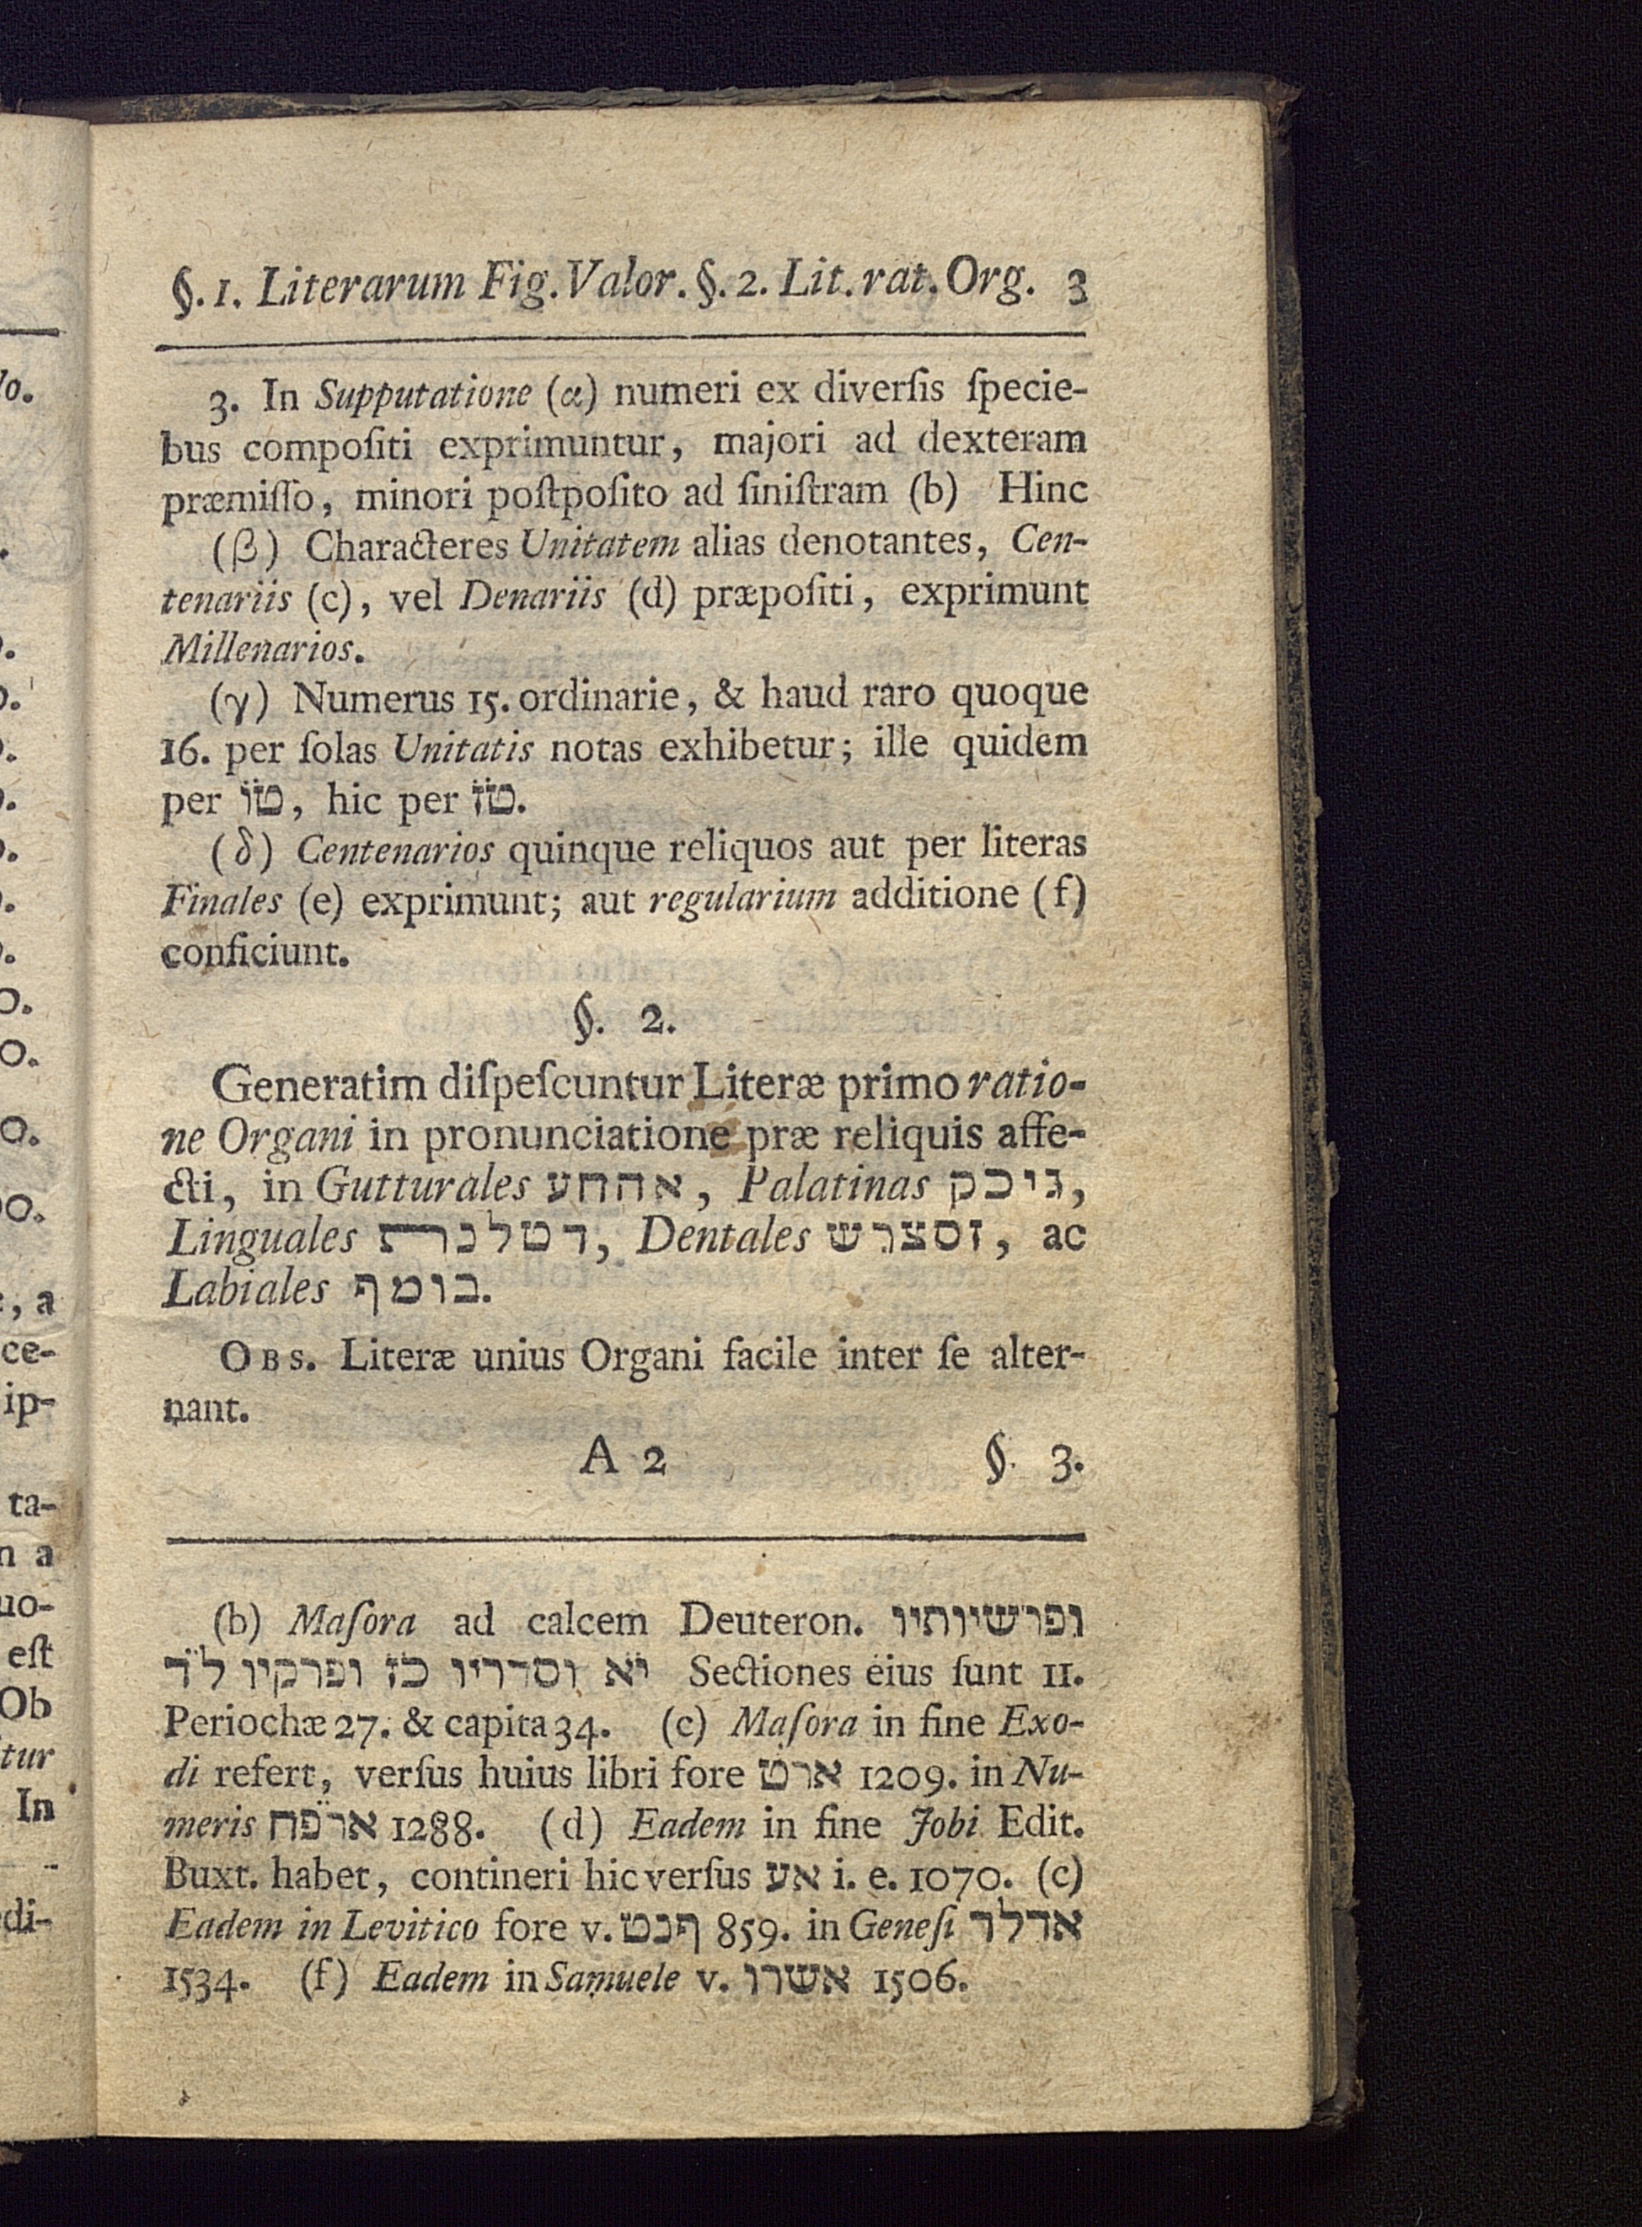 §. 1. Literarum Fig. Valor. §. 2. Lit. rat. Org. 3
3. In Supputatione (α) numeri ex diverſis ſpecie-
bus compoſiti exprimuntur, majori ad dexteram
præmiſſo, minori poſtpoſito ad ſiniſtram (b) Hinc
(β) Characteres Unitatem alias denotantes, Cen-
tenariis (c), vel Denariis (d) præpoſiti, exprimunt
Millenarios.
(γ) Numerus 15. ordinarie, & haud raro quoque
16. per ſolas Unitatis notas exhibetur; ille quidem
per טו, hic per טז.
(δ) Centenarios quinque reliquos aut per literas
Finales (e) exprimunt; aut regularium additione (f)
conficiunt.
§. 2.
Generatim diſpeſcuntur Literæ primo ratio-
ne Organi in pronunciatione præ reliquis affe-
cti, in Gutturales אהחע, Palatinas גיכק,
Linguales דטלנת, Dentales זסצרש, ac
Labiales בומף.
OBS. Literæ unius Organi facile inter ſe alter-
nant.
A 2 § 3.
(b) Maſora ad calcem Deuteron. ופרשיותיו
יא וסדריו כז ופרקיו לד Sectiones eius ſunt 11.
Periochæ 27. & capita 34. (c) Maſora in fine Exo-
di refert, verſus huius libri fore ארט 1209. in Nu-
meris ארפח 1288. (d) Eadem in fine Jobi Edit.
Buxt. habet, contineri hic verſus אע i. e. 1070. (c)
Eadem in Levitico fore v. ףנט 859. in Geneſi אךלד
1534. (f) Eadem in Samuele v. אשרו 1506.
lo.
o.
o.
o.
o.
, a
ce-
ip-
ta-
n a
uo-
eſt
Ob
tur
In
di-